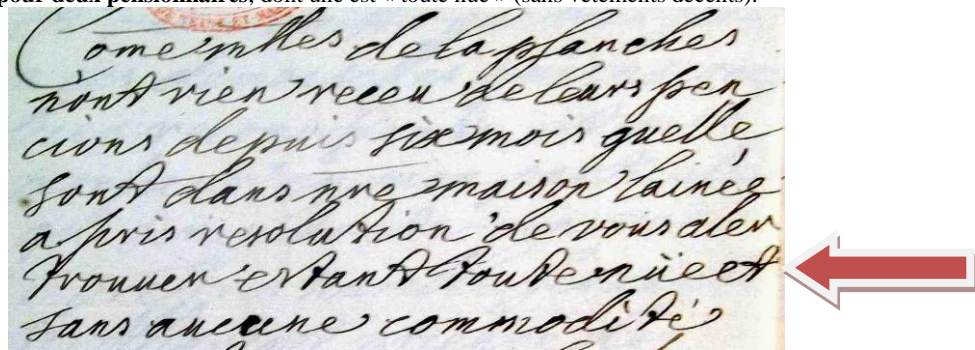 pour deux pensionnaires, dont une est « toute nue » (sans vêtements décents).
Come mlles de la planches
nont rien receu de leurs pen
cions depuis six mois quelle
sont dans nre maison lainée
a pris resolution de vous aler
trouuer estant toute nüe et
sans aucune commodité